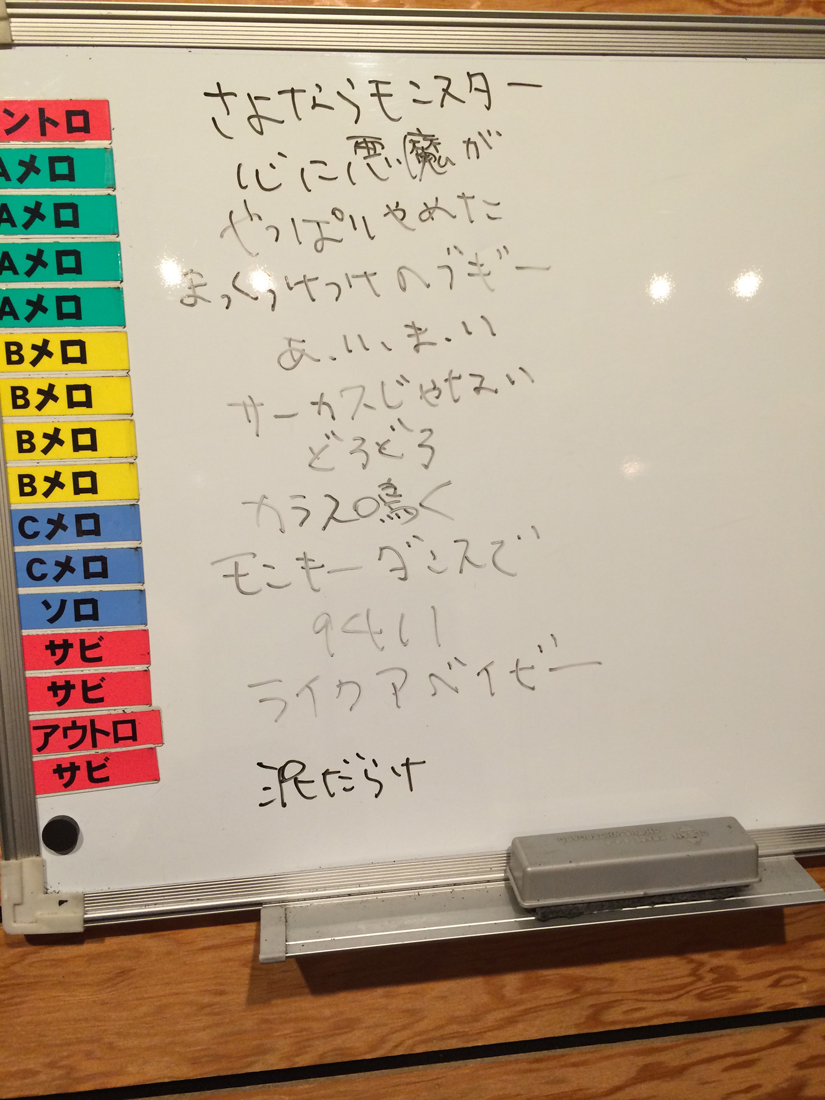 ントロ
Aメロ
Aメロ
Aメロ
Aメロ
Bメロ
Bメロ
Bメロ
Bメロ
Cメロ
Cメロ
ソロ
サビ
サビ
アウトロ
サビ
さよならモンスター
心に悪魔が
やっぱりやめた
まっくっけっけのブギー
あ.い.ま.い
サーカスじゃない
どろどろ
カラス鳴く
モンキーダンスで
9411
ライクアベイビー
泥だらけ